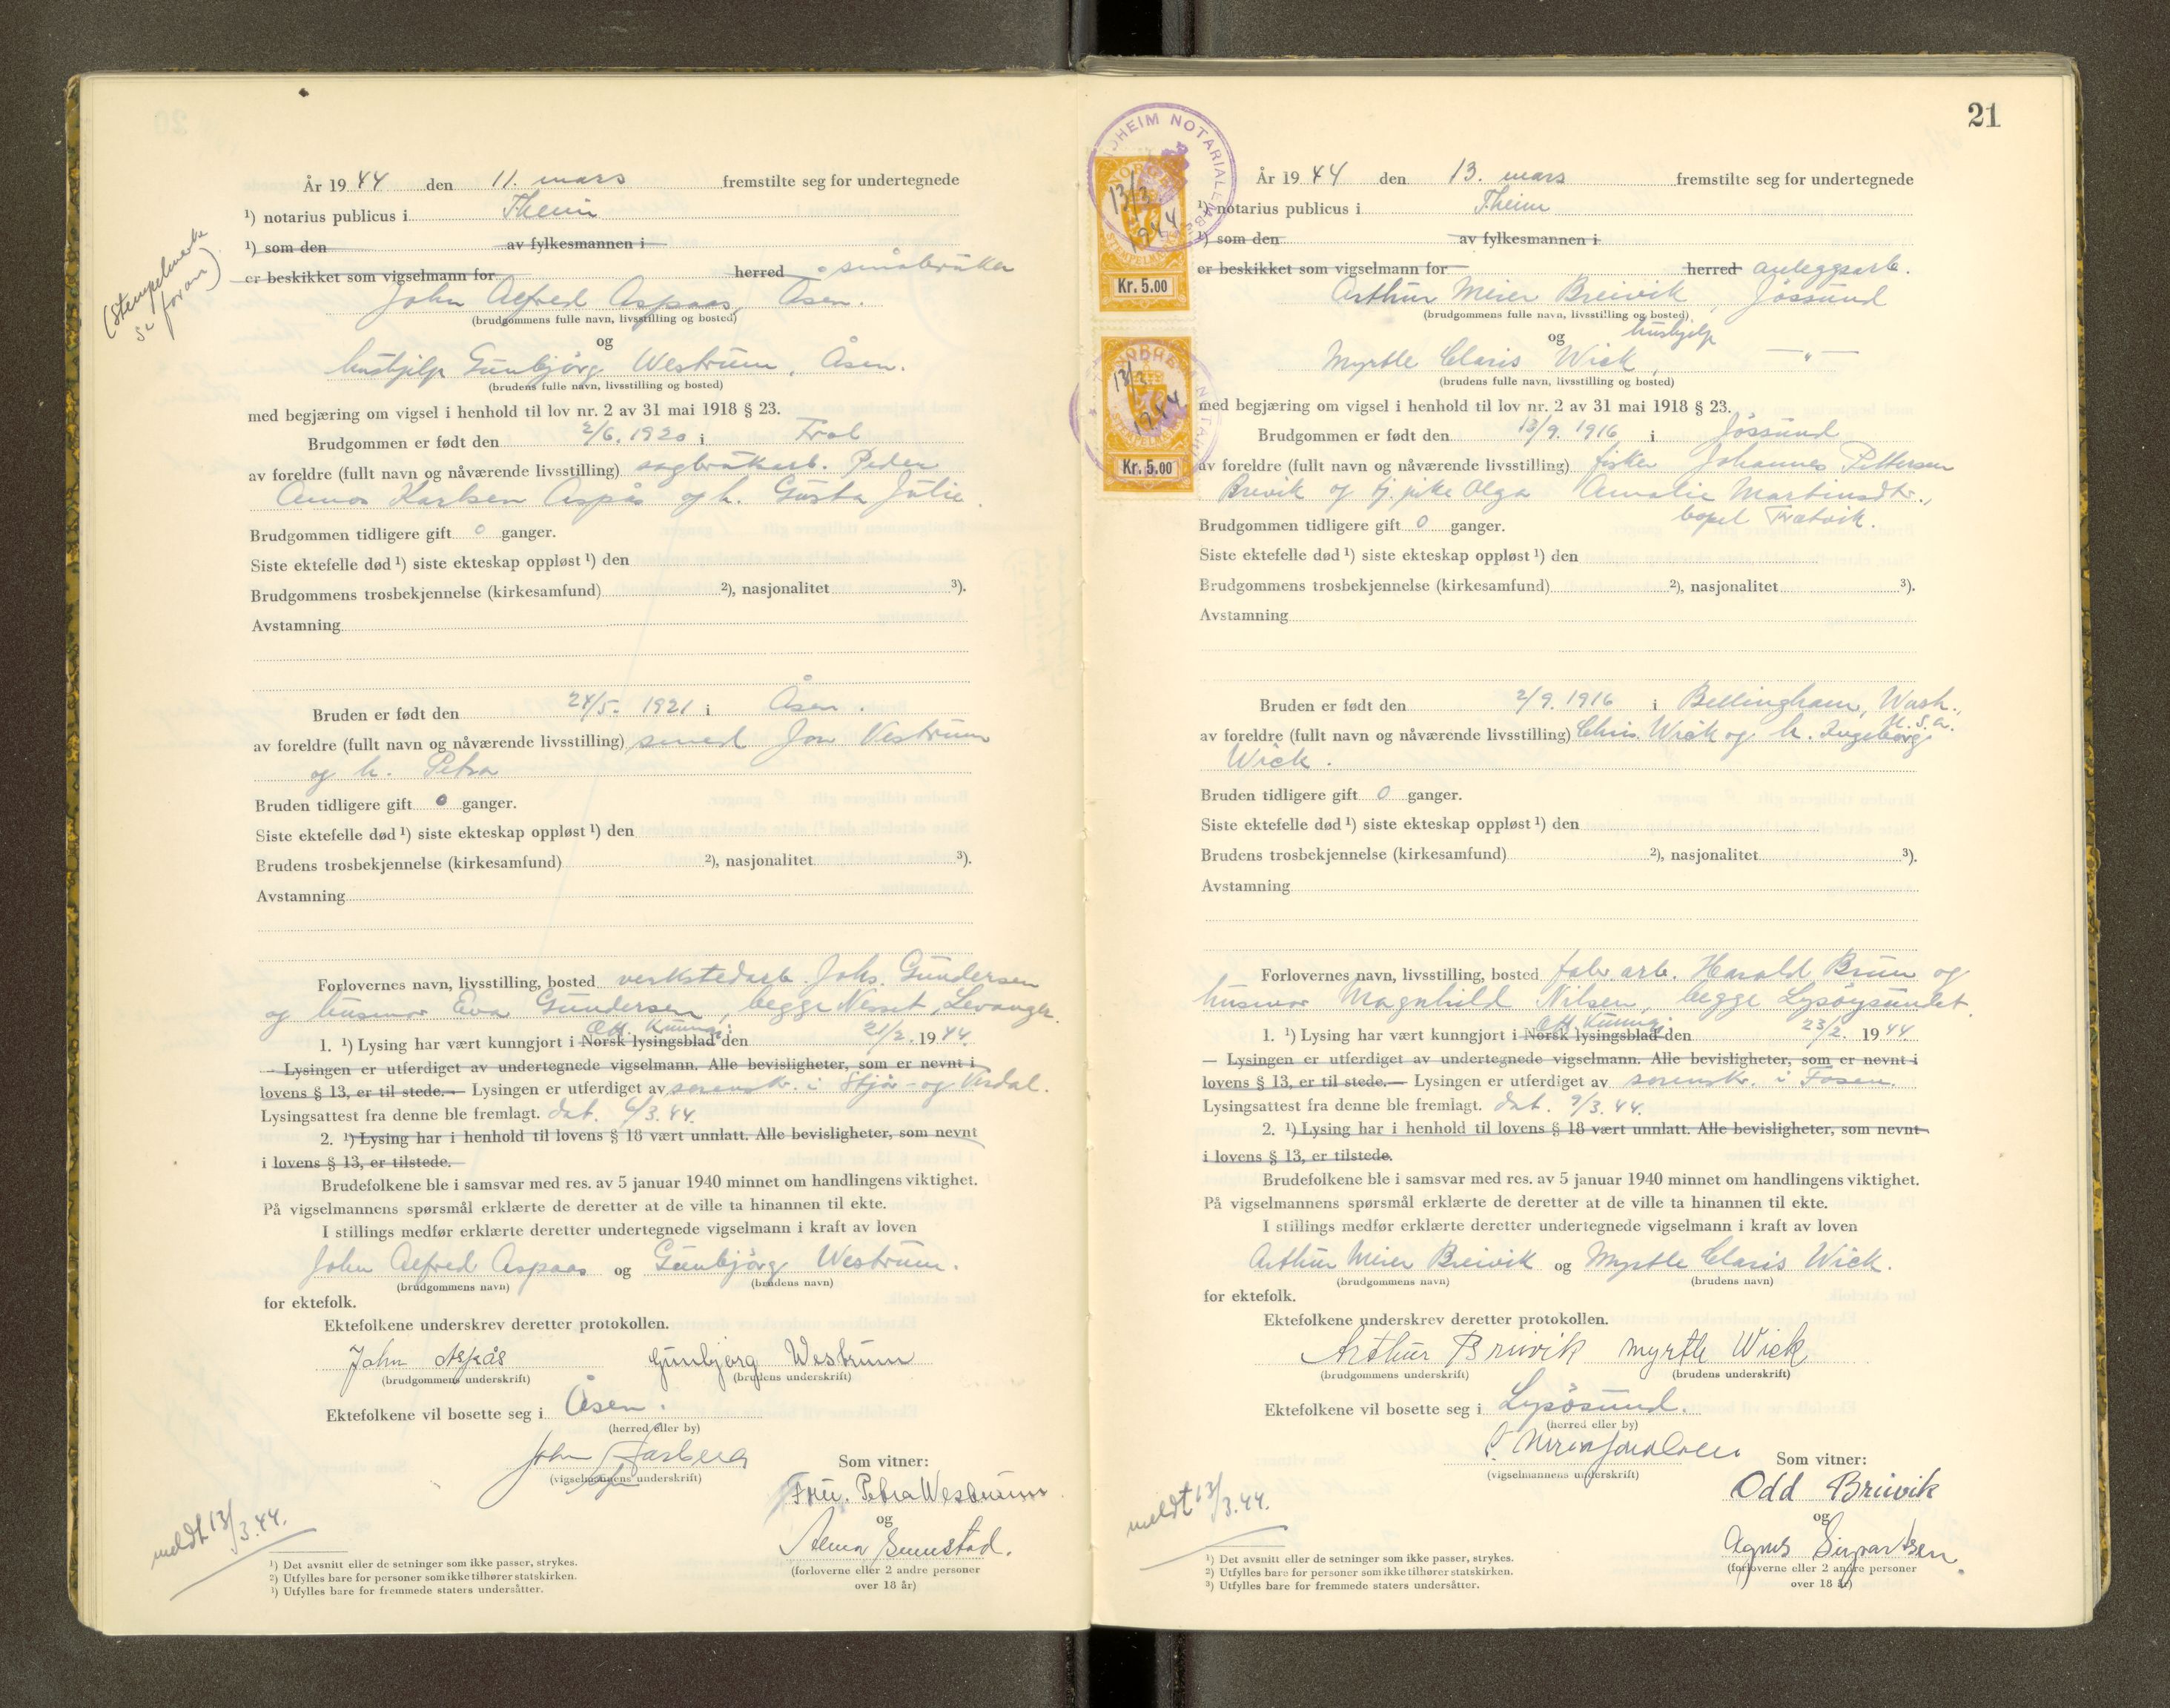 År 1944 den 11. mars fremstilte seg for undertegnede
¹) notarius publicus i T.heim
¹) som den av fylkesmannen i
er beskikket som vigselmann for herred småbruker
(Stempelmerke
se foran)
John Alfred Aspaas, Åsen.
(brudgommens fulle navn, livsstilling og bosted)
og
hushjelp Gunbjørg Westrum, Åsen.
(brudens fulle navn, livsstilling og bosted)
med begjæring om vigsel i henhold til lov nr. 2 av 31 mai 1918 § 23.
Brudgommen er født den 2/6. 1920 i Frol
av foreldre (fullt navn og nåværende livsstilling) sagbrukarb. Peder
Amos Karlsen Aspås og h. Gusta Julie.
Brudgommen tidligere gift 0 ganger.
Siste ektefelle død ¹) siste ekteskap oppløst ¹) den
Brudgommens trosbekjennelse (kirkesamfund) ²), nasjonalitet ³).
Avstamning
Bruden er født den 24/5. 1921 i Åsen.
av foreldre (fullt navn og nåværende livsstilling) smed Jon Vestrum
og h. Petra
Bruden tidligere gift 0 ganger.
Siste ektefelle død ¹) siste ekteskap oppløst ¹) den
Brudens trosbekjennelse (kirkesamfund) ²), nasjonalitet ³).
Avstamning
Forlovernes navn, livsstilling, bosted verkstedarb. Johs. Gundersen
og husmor Eva Gundersen, begge Nesset, Levanger.
Off. Kunngj.
1. ¹) Lysing har vært kunngjort i Norsk lysingsblad den 21/2. 1944.
— Lysingen er utferdiget av undertegnede vigselmann. Alle bevisligheter, som er nevnt i
lovens § 13, er til stede. — Lysingen er utferdiget av sorenskr. i Stjør- og Verdal.
Lysingsattest fra denne ble fremlagt. dat. 6/3. 44.
2. ¹) Lysing har i henhold til lovens § 18 vært unnlatt. Alle bevisligheter, som nevnt
i lovens § 13, er tilstede.
Brudefolkene ble i samsvar med res. av 5 januar 1940 minnet om handlingens viktighet.
På vigselmannens spørsmål erklærte de deretter at de ville ta hinannen til ekte.
I stillings medfør erklærte deretter undertegnede vigselmann i kraft av loven
John Alfred Aspaas og Gunbjørg Westrum.
(brudgommens navn) (brudens navn)
for ektefolk.
Ektefolkene underskrev deretter protokollen.
John Aspås Gunbjørg Westrum
(brudgommens underskrift) (brudens underskrift)
Ektefolkene vil bosette seg i Åsen.
(herred eller by)
John
(vigselmannens underskrift)
Som vitner:
Fru. Petra Westrum
og
(forloverne eller 2 andre personer
over 18 år)
meldt 13/3. 44.
¹) Det avsnitt eller de setninger som ikke passer, strykes.
²) Utfylles bare for personer som ikke tilhører statskirken.
³) Utfylles bare for fremmede staters undersåtter.
21
NOTARIALEMBE
13/3
1944
STEMPELMERKE
Kr. 5.00
13/3
1944
STEMPELMERKE
Kr. 5.00
År 1944 den 13. mars fremstilte seg for undertegnede
¹) notarius publicus i T.heim
¹) som den av fylkesmannen i
er beskikket som vigselmann for herred anleggsarb.
Arthur Meier Breivik, Jössund
(brudgommens fulle navn, livsstilling og bosted)
og hushjelp
Myrtle Claris Wick, — " —
(brudens fulle navn, livsstilling og bosted)
med begjæring om vigsel i henhold til lov nr. 2 av 31 mai 1918 § 23.
Brudgommen er født den 13/9. 1916 i Jössund
av foreldre (fullt navn og nåværende livsstilling) fisker Johannes Pettersen
Brevik og tj. pike Olga Amalie Martinsdtr.,
bopel
Brudgommen tidligere gift 0 ganger.
Siste ektefelle død ¹) siste ekteskap oppløst ¹) den
Brudgommens trosbekjennelse (kirkesamfund) ²), nasjonalitet ³).
Avstamning
Bruden er født den 2/9. 1916 i Bellingham, Wash.,
U.S.A.
av foreldre (fullt navn og nåværende livsstilling) Chris. Wick og h. Ingeborg
Wick.
Bruden tidligere gift 0 ganger.
Siste ektefelle død ¹) siste ekteskap oppløst ¹) den
Brudens trosbekjennelse (kirkesamfund) ²), nasjonalitet ³).
Avstamning
Forlovernes navn, livsstilling, bosted fabr. arb. Harald Brun og
husmor Magnhild Nilsen, begge Lysöysundet.
Off. Kunngj.
1. ¹) Lysing har vært kunngjort i Norsk lysingsblad den 23/2. 1944
— Lysingen er utferdiget av undertegnede vigselmann. Alle bevisligheter, som er nevnt i
lovens § 13, er til stede. — Lysingen er utferdiget av sorenskr. i Fosen.
Lysingsattest fra denne ble fremlagt. dat. 9/3. 44.
2. ¹) Lysing har i henhold til lovens § 18 vært unnlatt. Alle bevisligheter, som nevnt
i lovens § 13, er tilstede.
Brudefolkene ble i samsvar med res. av 5 januar 1940 minnet om handlingens viktighet.
På vigselmannens spørsmål erklærte de deretter at de ville ta hinannen til ekte.
I stillings medfør erklærte deretter undertegnede vigselmann i kraft av loven
Arthur Meier Breivik og Myrtle Claris Wick.
(brudgommens navn) (brudens navn)
for ektefolk.
Ektefolkene underskrev deretter protokollen.
Arthur Breivik Myrtle Wick
(brudgommens underskrift) (brudens underskrift)
Ektefolkene vil bosette seg i Lysösund.
(herred eller by)
(vigselmannens underskrift)
Som vitner:
Odd Breivik
og
Agnes Sivertsen
(forloverne eller 2 andre personer
over 18 år)
meldt 13/3. 44.
¹) Det avsnitt eller de setninger som ikke passer, strykes.
²) Utfylles bare for personer som ikke tilhører statskirken.
³) Utfylles bare for fremmede staters undersåtter.